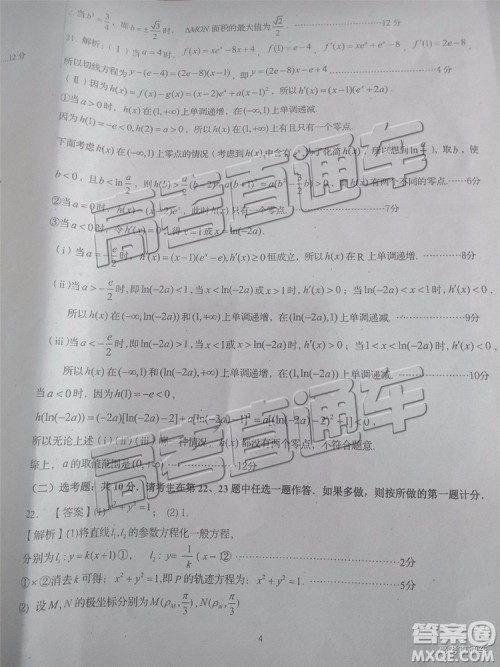 当 b²=3/4，即 b=±√3/2 时，ΔMGN 面积的最大值为 √2/2. 12分
12分
21. 解析：(Ⅰ) 当 a=4 时，f(x)=xeˣ-8x+4，f(1)=e-4，f′(x)=xeˣ+eˣ-8，f′(1)=2e-8，
所以切线方程为 y-(e-4)=(2e-8)(x-1)，即 y=(2e-8)x-e+4 4分
(Ⅱ) 因为 h(x)=f(x)-g(x)=(x-2)eˣ+a(x-1)²，所以 h′(x)=(x-1)(eˣ+2a)
①当 a>0 时，h(x) 在 (1,+∞) 上单调递增，在 (-∞,1) 上单调递减.
因为 h(1)=-e<0, h(2)=a>0，所以 h(x) 在 (1,+∞) 上有且只有一个零点.
下面考虑 h(x) 在 (-∞,1) 上零点的情况（考虑到 h(x) 中含有 为了化简 所以想到 ln 取 b，使
b<0，且 b<ln a/2，则 h(b)> 有两个不同的零点. 6分
②当 a=0 时，h(x)=(x-2)eˣ，此时 h(x) 只有一个零点. 7分
③当 a<0 时，令 h′(x)=0 得 x=1 或 x=ln(-2a)
(ⅰ) 当 a=-e/2 时，h′(x)=(x-1)(eˣ-e)，h′(x)≥0 恒成立，所以 h(x) 在 R 上单调递增. 8分
(ⅱ) 当 a>-e/2 时，即 ln(-2a)<1，当 x<ln(-2a) 或 x>1 时，h′(x)>0；当 ln(-2a)<x<1 时，h′(x)<0；
所以 h(x) 在 (-∞,ln(-2a)) 和 (1,+∞) 上单调递增，在 (ln(-2a),1) 上单调递减. 9分
(ⅲ) 当 a<-e/2 时，即 ln(-2a)>1，当 x<1 或 x>ln(-2a) 时，h′(x)>0；当 1<x<ln(-2a) 时，h′(x)<0；
所以 h(x) 在 (-∞,1) 和 (ln(-2a),+∞) 上单调递增，在 (1,ln(-2a)) 上单调递减. 10分
当 a<0 时，因为 h(1)=-e<0，
h(ln(-2a))=(-2a)[ln(-2a)-2]+a[ln(-2a)-1]²
所以无论上述 (ⅰ)(ⅱ)(ⅲ) 哪一种情况，h(x) 都没有两个零点，不符合题意.
综上，a 的取值范围是 (0,+∞). 12分
（二）选考题：共 10 分. 请考生在第 22、23 题中任选一题作答. 如果多做，则按所做的第一题计分.
22. 【答案】(1) x²+y²=1；(2) 1.
【解析】(1)将直线 l₁,l₂ 的参数方程化一般方程，
分别为 l₁: y=k(x+1)①， l₂: y=1/k(x-1)② 2分
①×②消去 k 可得：x²+y²=1，即 P 的轨迹方程为：x²+y²=1. 5分
(2) 设 M,N 的极坐标分别为 M(ρM,π/3), N(ρN,π/3)
4
高考直通车
高考直通车
答案圈